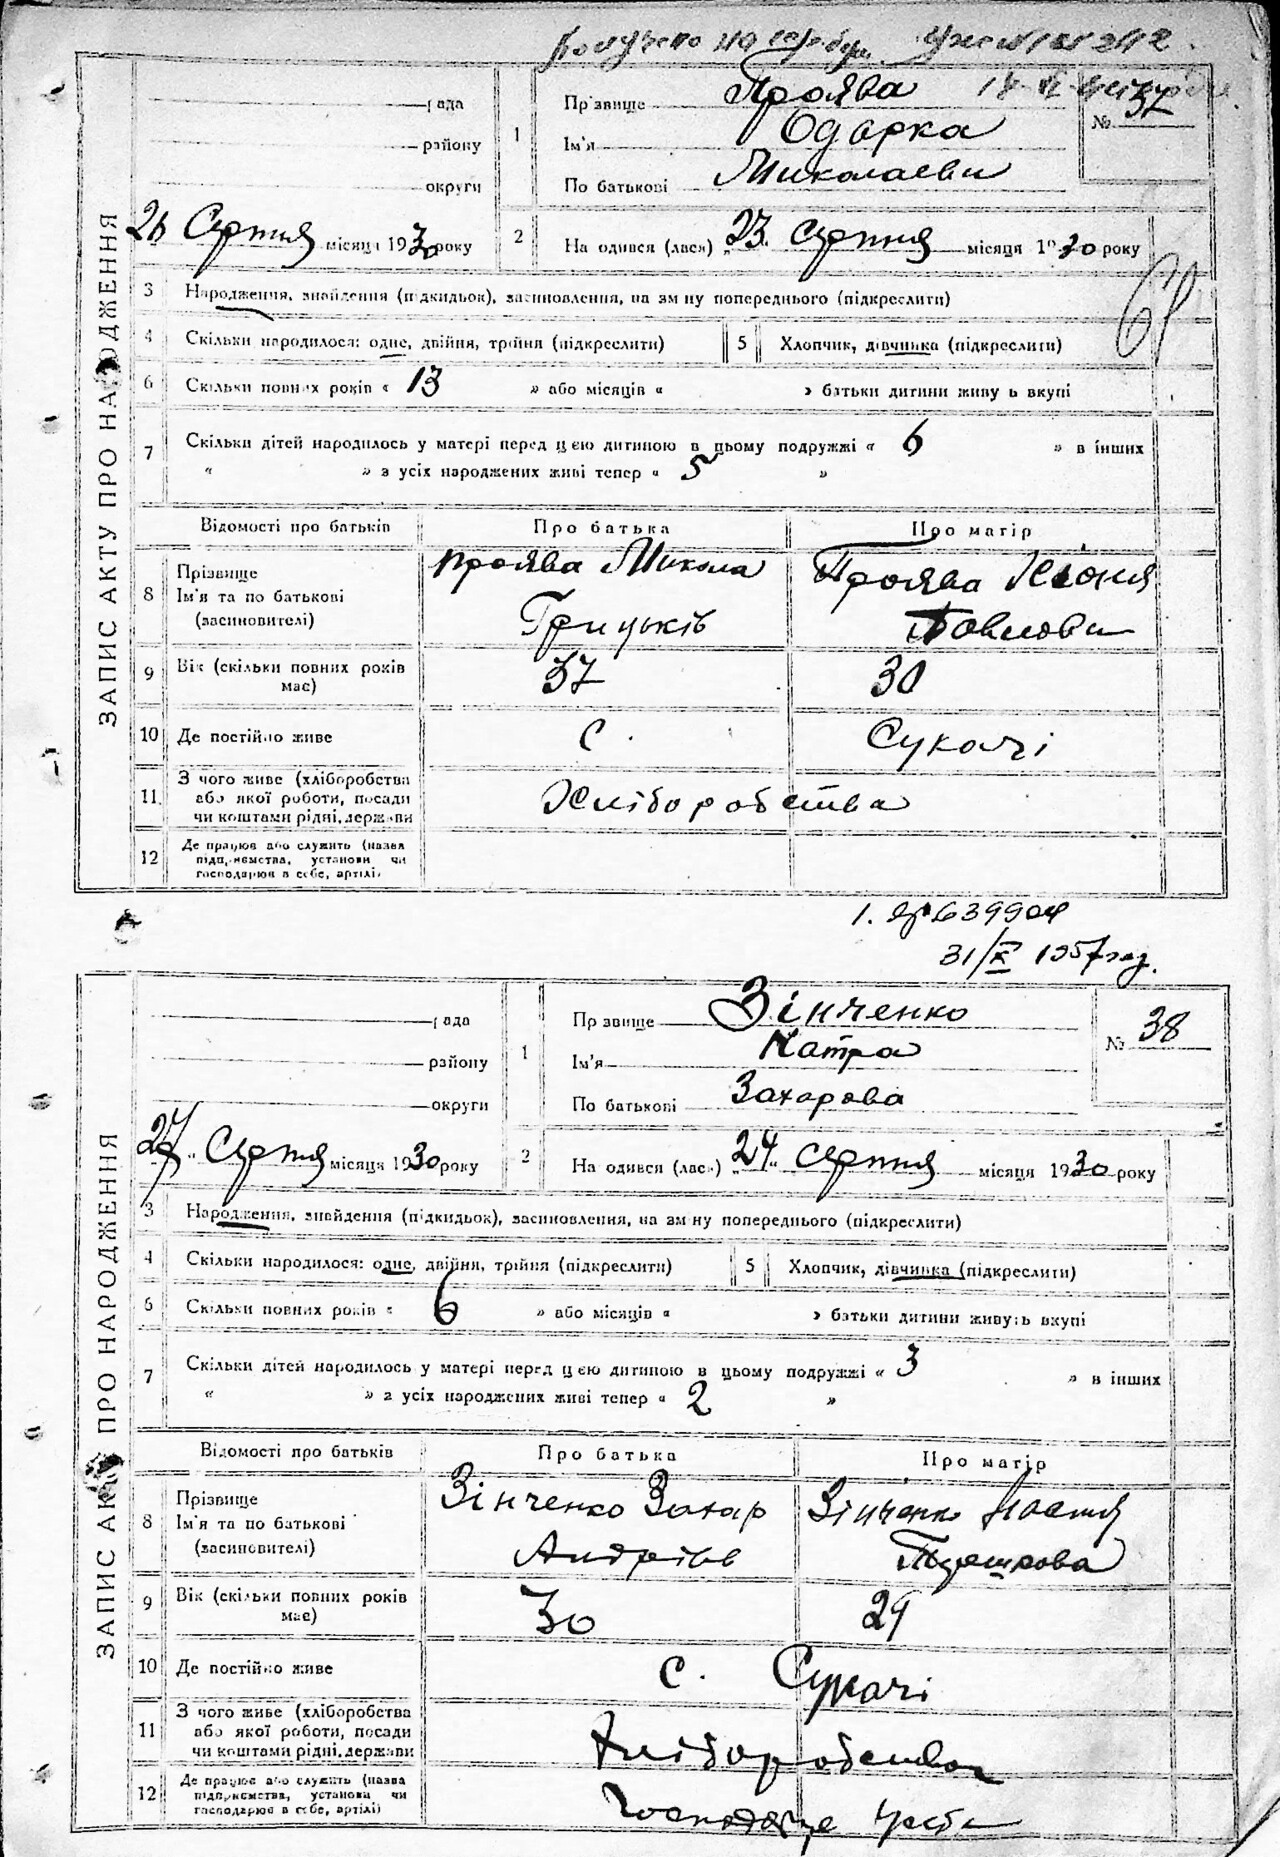 рада
району
округи
1
Прізвище Проява
Ім'я Одарка
По батькові Миколаєви
№ 37
26 Серпня місяця 1930 року
2
Народився (лася) „23" серпня місяця 1930 року
3 Народження, знайдення (підкидьок), засиновлення, на зміну попереднього (підкреслити)
4 Скільки народилося: одне, двійня, трійня (підкреслити)
5 Хлопчик, дівчинка (підкреслити)
6 Скільки повних років « 13 » або місяців « » батьки дитини живуть вкупі
7 Скільки дітей народилось у матері перед цією дитиною в цьому подружжі « 6 » в інших
« » з усіх народжених живі тепер « 5 »
Відомості про батьків Про батька Про матір
8 Прізвище Ім'я та по батькові (засиновителі)
Проява Микола Грицьків
Проява Ксіоня Павлови
9 Вік (скільки повних років має) 37 30
10 Де постійно живе с. Сукачі
11 З чого живе (хліборобства або якої роботи, посади чи коштами рідні, держави Хліборобства
12 Де працює або служить (назва підприємства, установи чи господарює в себе, артілі)
ЗАПИС АКТУ ПРО НАРОДЖЕННЯ
639904
31/X 1957
рада
району
округи
1
Прізвище Зінченко
Ім'я Мотра
По батькові Захарова
№ 38
27 Серпня місяця 1930 року
2
Народився (лася) „24" серпня місяця 1930 року
3 Народження, знайдення (підкидьок), засиновлення, на зміну попереднього (підкреслити)
4 Скільки народилося: одне, двійня, трійня (підкреслити)
5 Хлопчик, дівчинка (підкреслити)
6 Скільки повних років « 6 » або місяців « » батьки дитини живуть вкупі
7 Скільки дітей народилось у матері перед цією дитиною в цьому подружжі « 3 » в інших
« » з усіх народжених живі тепер « 2 »
Відомості про батьків Про батька Про матір
8 Прізвище Ім'я та по батькові (засиновителі)
Зінченко Захар Андріїв
Зінченко Настя
9 Вік (скільки повних років має) 30 29
10 Де постійно живе с. Сукачі
11 З чого живе (хліборобства або якої роботи, посади чи коштами рідні, держави Хліборобства
12 Де працює або служить (назва підприємства, установи чи господарює в себе, артілі)
ЗАПИС АКТУ ПРО НАРОДЖЕННЯ